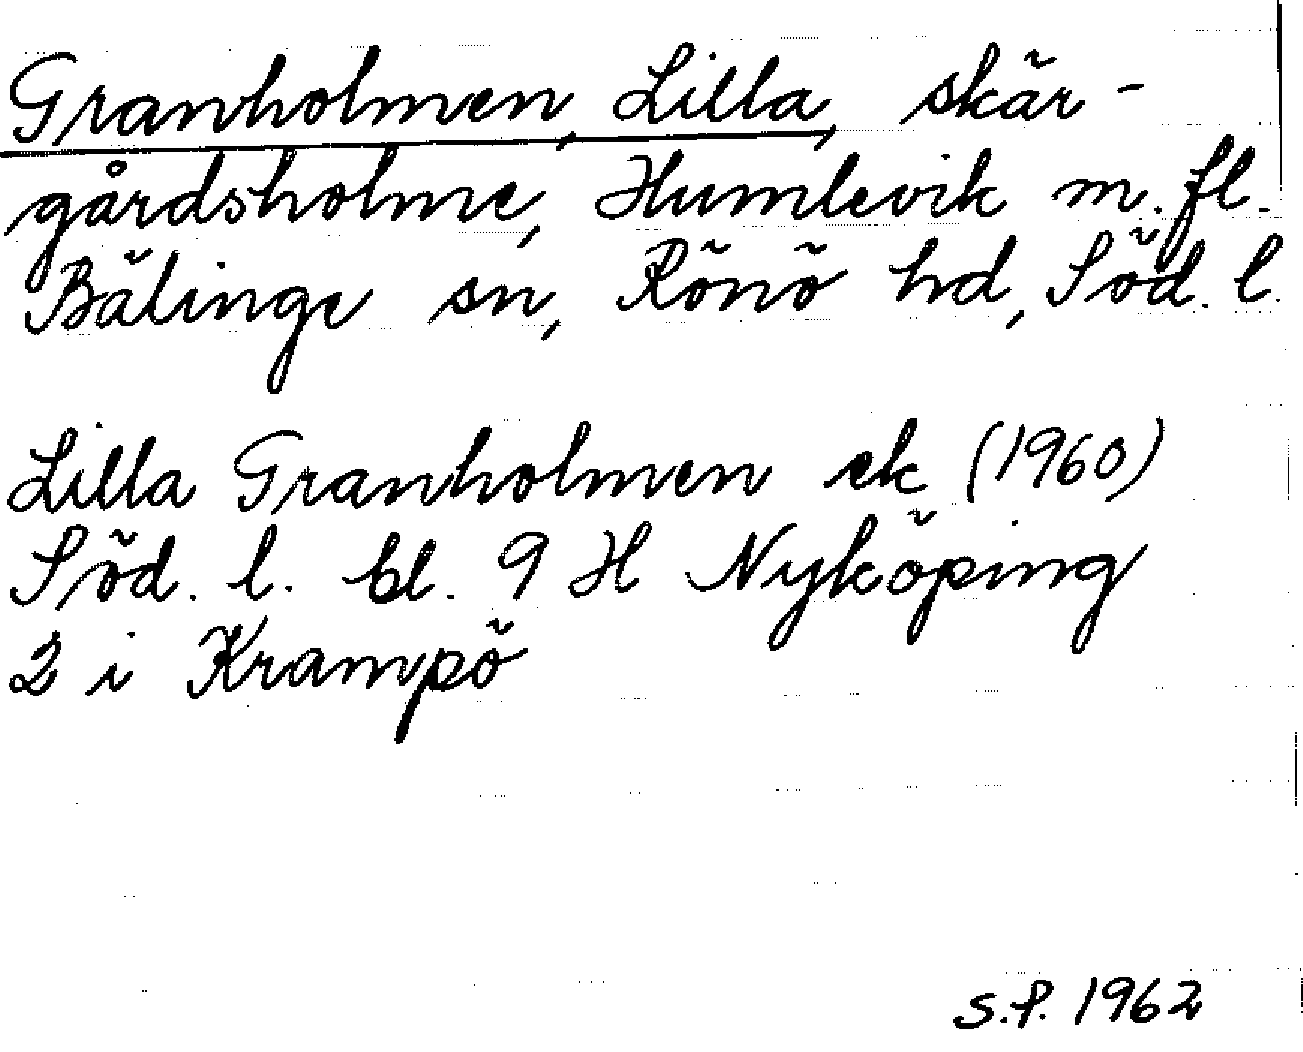 Granholmen, Lilla, skär-
gårdsholme, Humlevik m.fl.
Bälinge sn, Rönö hd, Söd. l.
Lilla Granholmen ek (1960)
Söd. l. bl. 9 H Nyköping
2 i Krampö
S.P. 1962